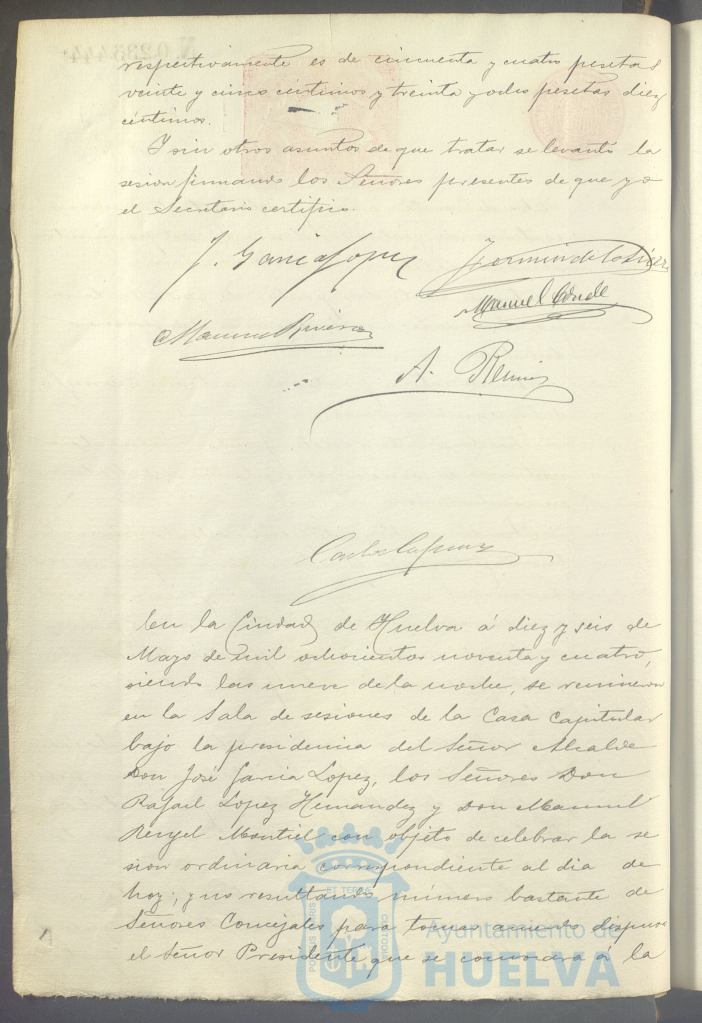 respectivamente es de cincuenta y cuatro pesetas
veinte y cinco céntimos y treinta y ocho pesetas diez
céntimos.
Y sin otros asuntos de que tratar se levantó la
sesion firmando los Señores presentes de que yo
el Secretario certifico.
J. Garcia Lopez
Manuel Conde
A.
En la Ciudad de Huelva á diez y seis de
Mayo de mil ochocientos noventa y cuatro,
siendo las nueve de la noche, se reunieron
en la Sala de sesiones de la Casa Capitular
bajo la presidencia del Señor Alcalde
Don José Garcia Lopez, los Señores Don
Rafael Lopez Hernandez y Don Manuel
Montiel con objeto de celebrar la se
sion ordinaria correspondiente al dia de
hoy; y no resultando número bastante de
Señores Concejales para tomar acuerdo dispuso
el Señor Presidente que se convocára á la
Ayuntamiento de
HUELVA